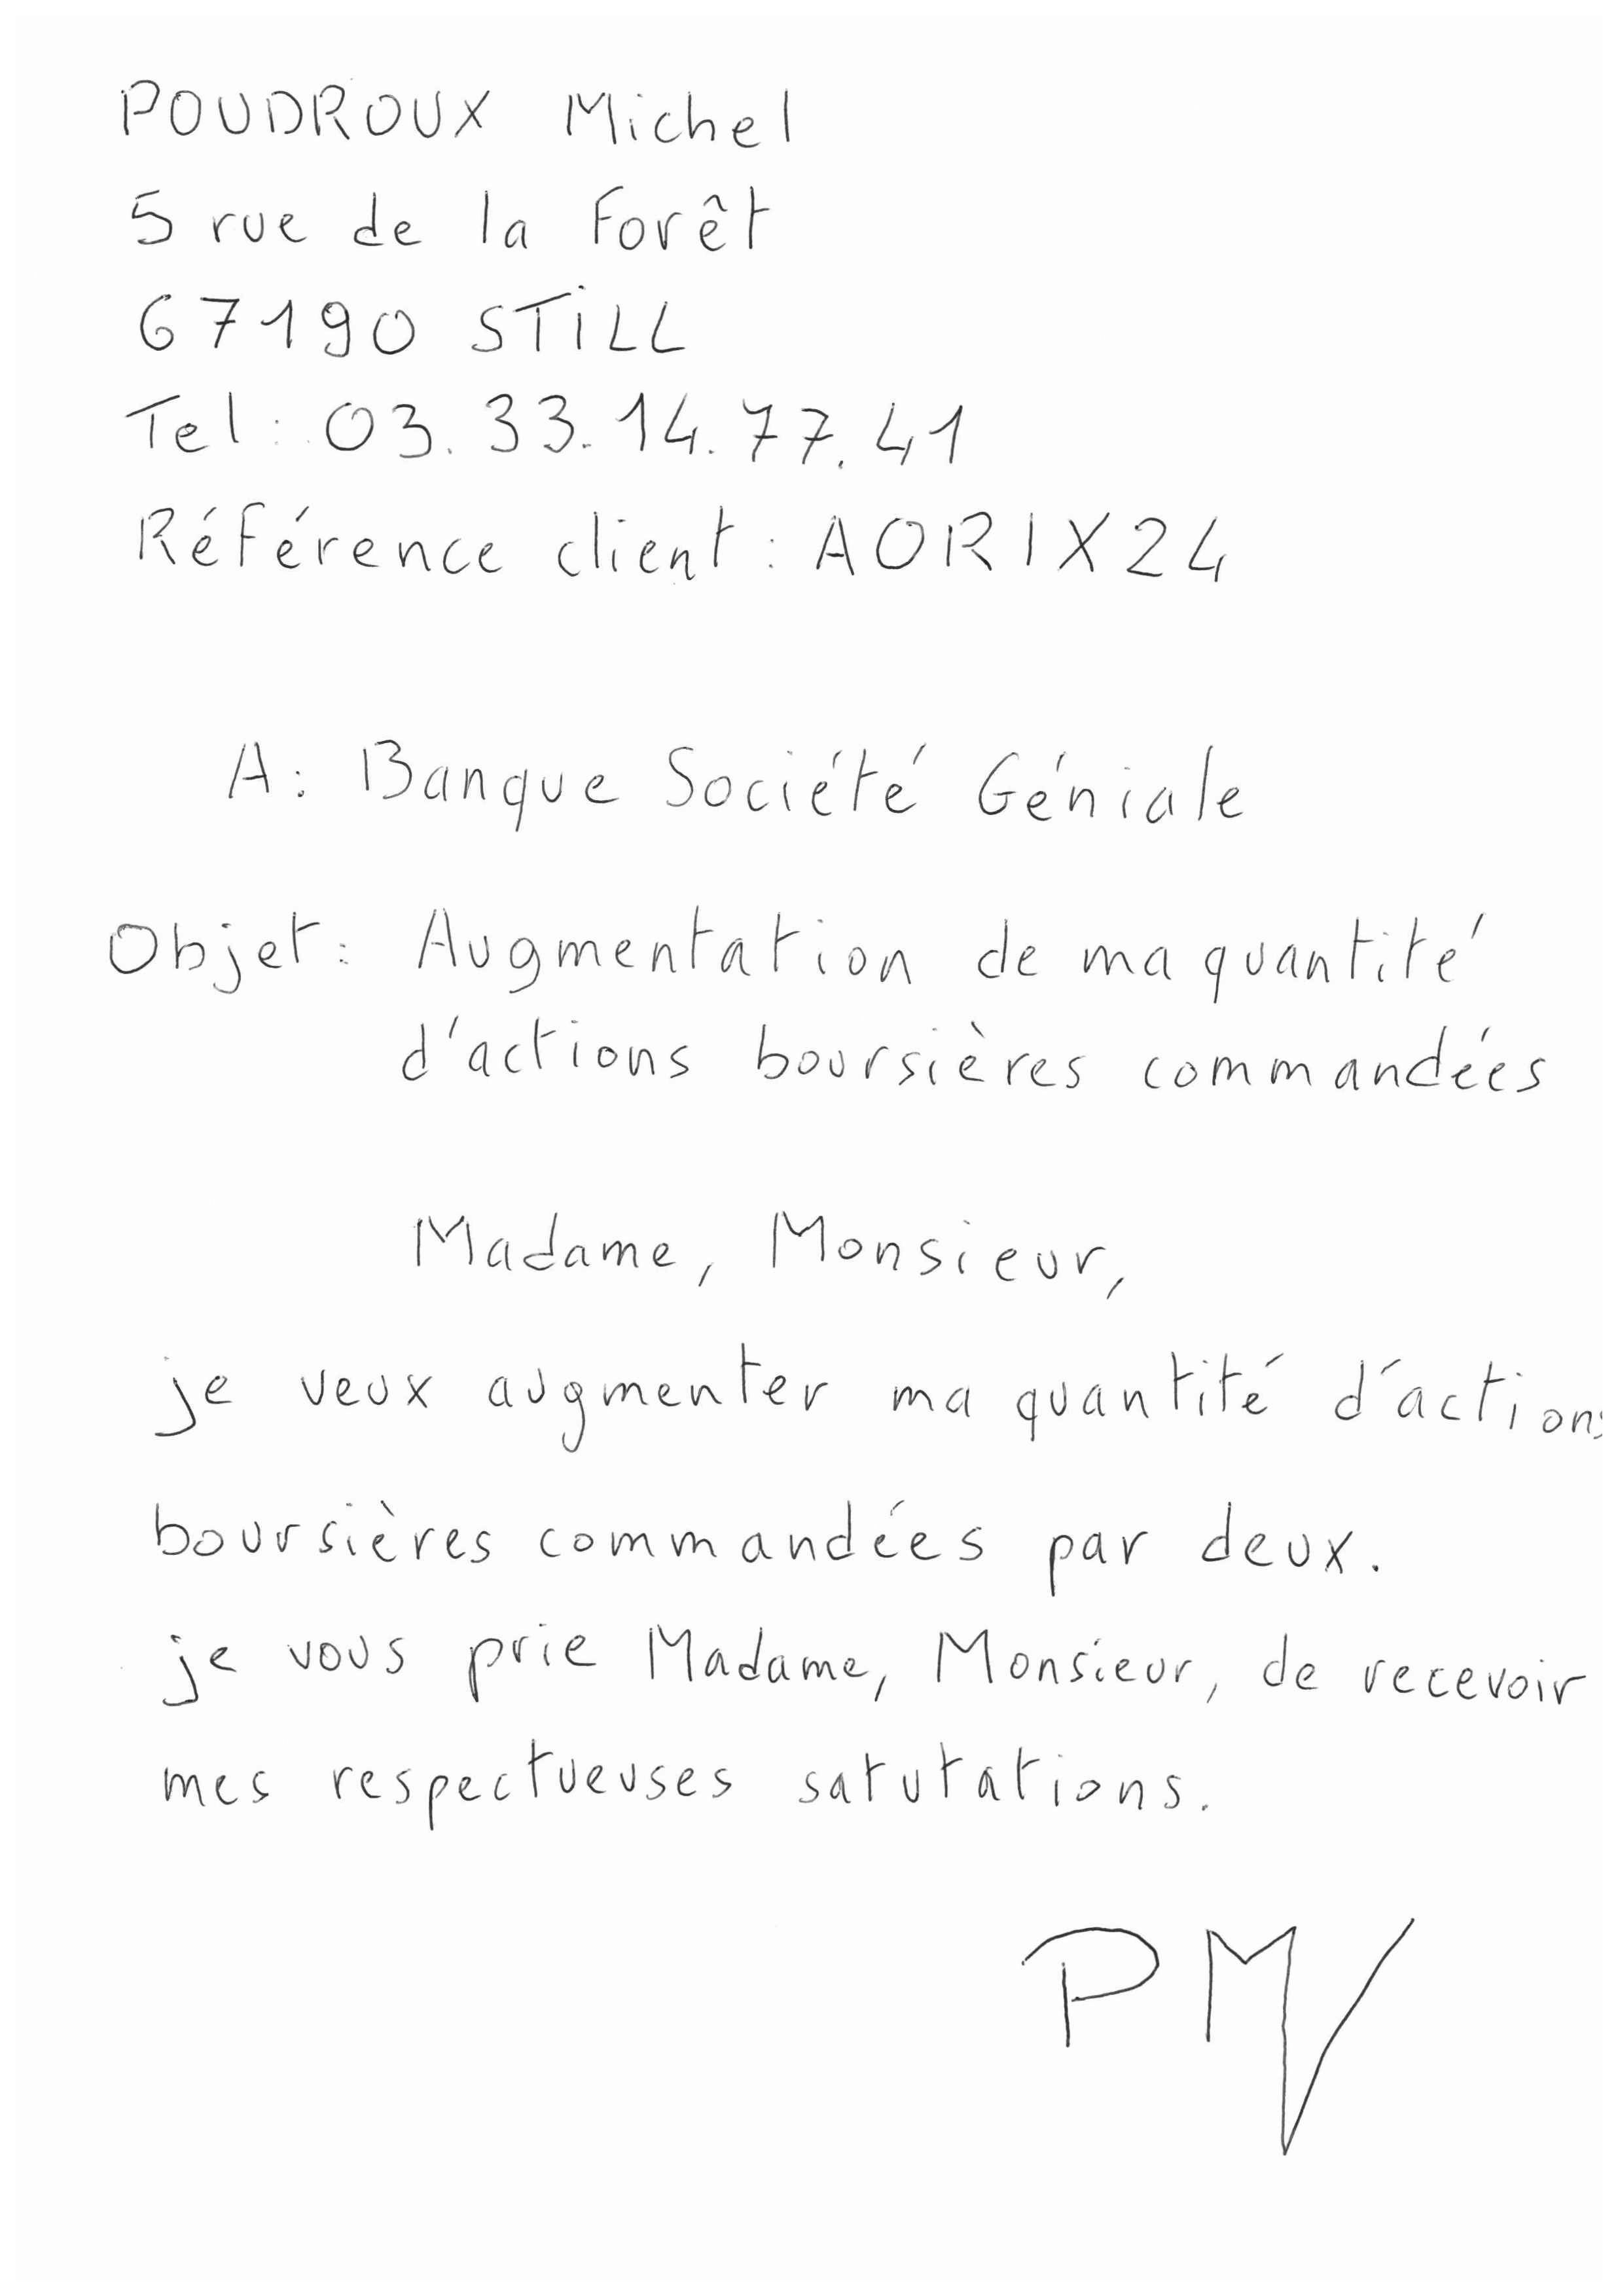 POUDROUX Michel
5 rue de la Forêt
67190 STiLL
Tel : 03.33.14.77.41
Référence client : AORIX24
A : Banque Société Géniale
Objet : Augmentation de ma quantité
d'actions boursières commandées
Madame, Monsieur,
je veux augmenter ma quantité d'actions
boursières commandées par deux.
je vous prie Madame, Monsieur, de recevoir
mes respectueuses satutations.
PM